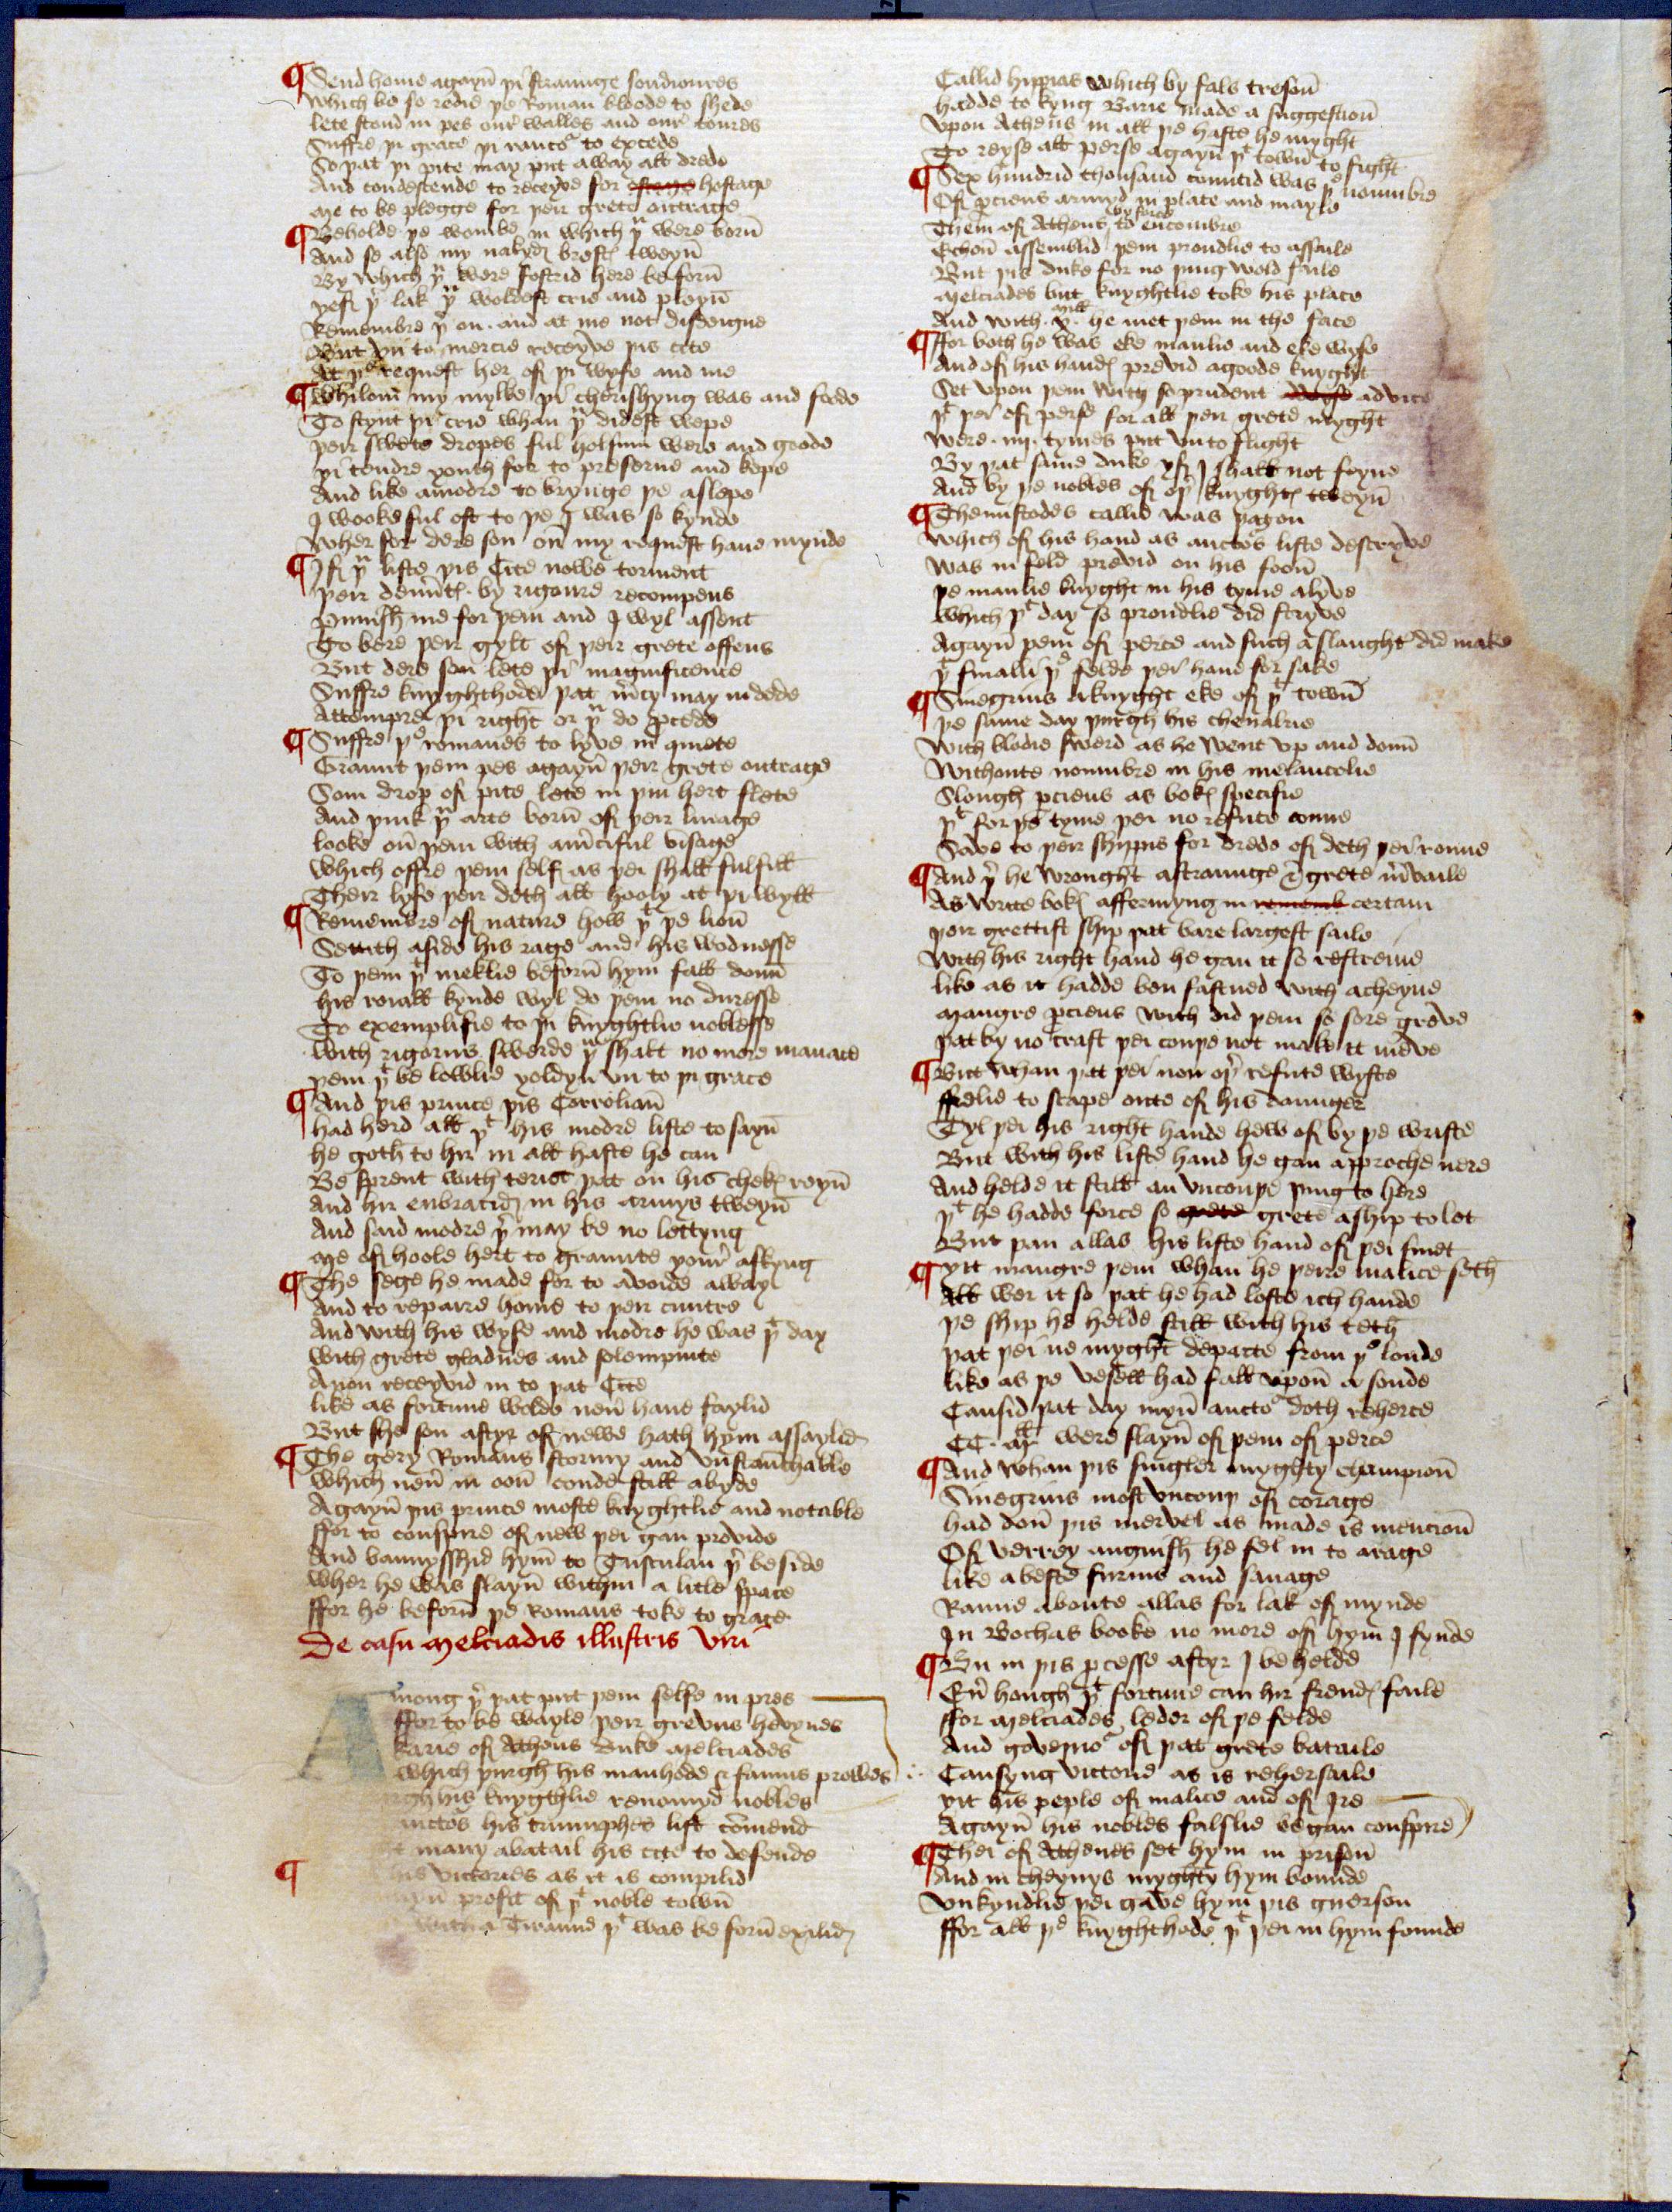 ¶ Send home agayn̄ þi straunge soudioures
Which be so redie þe Roman bloode to shede
lete stond in pes our walles and our toures
Suffre þi grace þi rancor to excede
So þat þi pite may put away all drede
And condescende to receyve for ostage hostage
Me to be plegge for þeir grete outrage
¶ Beholde þe wombe in which þu were born̄
And se also my nakyd brestes tweyn̄
By which þu were fostrid here beforn̄
yef þei lak þu woldest crie and pleyn̄
Remembre þer on and at me not disdeigne
But vn to mercie receyve þis cite
At þe request her of þi wyfe and me
¶ Whilom my mylke þi cherishyng was and foode
To stynt þi crie whan þu didest wepe
þeir swete dropes ful holsum were and goode
þi tendre youth for to preserue and kepe
And like a modre to brynge þe aslepe
I wooke ful oft to þe I was so kynde
Wher for dere son on my request haue mynde
¶ If þu liste þis Cite nowe torment
þeir demerites by rigoure recompens
Punissh me for þem and I wyl assent
To bere þeir gylt of þeir grete offens
But dere son lete þi magnificence
Suffre knyghthode þat mercy may in dede
Attempre þi right or þu do procede
¶ Suffre þe romanes to lyve in quiete
Graunt þem pes agayn̄ þeir grete outrage
Som drop of pite lete in þin hert flete
And þink þu arte born̄ of þeir linage
looke on̄ þem with a mereciful visage
Which offre þem self as þei shall fulfill
Their lyfe þeir deth all hooly at þi wyll
¶ Remembre of nature how þt þe lion̄
Setteth aside his rage and his wodnesse
To þem þt meklie beforn̄ hym fall doun̄
his roiall kynde wyl do þem no duresse
To exemplifie to þi knyghtlie noblesse
With rigorus swerde þu shalt no more manace
þem þt be lowlie yoldyn vn to þi grace
¶ And þis prince þis Corrolian̄
had herd all þt his modre liste to sayn̄
he goth to hir in all haste he can
Be sprent with teris þat on his chekes royn̄
And hir enbracid in his armys tweyn̄
And said modre þer may be no lettyng
Me of hoole hert to graunte your askyng
¶ The sege he made for to avoide away
And to repaire home to þeir cuntre
And with his wyfe and modre he was þt day
With grete gladnes and solempnite
Anon receyvid in to þat Cite
like as fortune wolde neuer haue faylid
But she son aftyr of newe hath hym assaylid
¶ The gery Romans stormy and vnstaunchable
Which neuer in oon̄ conde still abyde
Agayn̄ þis prince moste knyghtlie and notable
ffor to conspire of new þei gan provide
And bannysshid hym to Tusculan þer beside
Wher he was slayn̄ within a litle space
ffor he beforn̄ þe Romans toke to grace
De casu Melciadis illustris viri
Among þer þat put þem selfe in pres
ffor to be wayle þeir grevus hevynes
Karie of Athens duke Melciades
Which þurgh his manhode & famus prowes
rgh his knyghtlie renomyd nobles
auctors his triumphes list comend
ht many a batail his cite to defende
¶ his victories as it is compilid
profit of þt noble town̄
with a Tiraunt þt was beforn̄ exilid
Callid hippias which by fals treson̄
hadde to kyng Darie made a suggestion̄
Vpon Athens in all þe haste he myght
To reyse all perse agayn̄ þt town to fight
¶ Sex hundrid thousand countid was þe noumbre
Of perciens armyd in plate and mayle
Them of Athens by force to encombre
Echon̄ assemblid þem proudlie to assaile
But þis duke for no þing wold faile
Melciades but knyghtlie toke his place
And with .x. mill he met þem in the face
¶ ffor both he was eke manlie and eke wyse
And of his handes prevид a goode knyght
Set vpon þem with so prudent advice
þt þei of perse for all þeir grete myght
Were .iij. tymes put vnto flight
By þat same duke yf I shall not feyne
And by þe nobles of oþer knyghtes tweyn̄
¶ Themistodes callid was þat on
Which of his hand as auctors liste descryve
Was in feld previd on his foon̄
þe manlie knyght in his tyme alyve
Which þt day so proudlie did stryve
Agayn̄ þem of perce and such a slaughter did make
þt finalli þe felde þei haue for sake
¶ Sinegrius a knyght eke of þt town̄
þe same day þurgh his cheualrie
With blodie swerd as he went vp and doun̄
Withoute noumbre in his melancolie
Slough perciens as bokes specifie
þt for þt tyme þei no refute conne
Save to þeir shippis for drede of deth þei ronne
¶ And þer he wrought a straunge & grete mervaile
As write bokes affermyng in rememb certain
þeir grettist ship þat bare largest saile
With his right hand he gan it so restreine
like as it hadde ben fastned with a cheyne
Maugre perciens with did þem so sore greve
þat by no craft þei couþe not make it meve
¶ But whan þat þei non oþer refute wyste
ffrelie to scape oute of his daunger
Tyl þei his right hande hew of by þe wriste
But with his lifte hand he gan approche nere
And helde it still an vncouþe þing to here
þt he hadde force so grete grete a ship to let
But þan allas his lifte hand of þei smet
¶ yit maugre þem whan he þeire malice seth
All wer it so þat he had loste ich hande
þe ship he helde still with his teth
þat þei ne myght departe from þe londe
like as þe vesell had fall vpon̄ a sonde
Causid þat day myn̄ auctor doth reherce
CC. were slayn̄ of þem of perce
¶ And whan þis singler myghty champion̄
Sinegrius most vncouþ of corage
had don̄ þis mervel as made is mencion̄
Of verrey anguish he fel in to a rage
like a beste furius and sauage
Ranne aboute allas for lak of mynde
In Bochas booke no more of hym I fynde
¶ Bu in þis processe aftyr I be helde
Euer hough þt fortune can hir frendes faile
ffor Melciades leder of þe felde
And governor of þat grete bataile
Causyng victorie as is rehersaile
yit his peple of malice and of Ire
Agayn̄ his nobles falslie began conspire
¶ Thei of Athenes set hym in prison̄
And in cheynys myghty hym bounde
Vnkyndlie þei gave hym þis guerson
ffor all þe knyghthode þt þei in hym founde